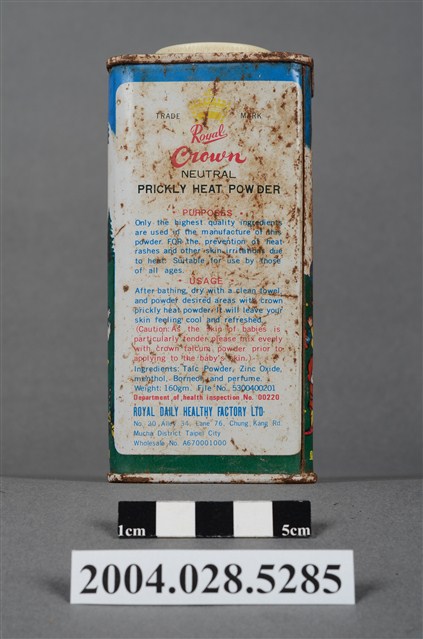 TRADE MARK
Royal
Crown
NEUTRAL
PRICKLY HEAT POWDER
- PURPOSES -
Only the highest quality ingredients
are used in the manufacture of this
powder FOR the prevention of heat
rashes and other skin irritations due
to heat. Suitable for use by those
of all ages.
- USAGE -
After bathing, dry with a clean towel,
and powder desired areas with crown
plickly heat powder. It will leave your
skin feeling cool and refreshed.
(Caution: As the skin of babies is
particularly tender please mix evenly
with crown talcum powder prior to
applying to the baby's skin.)
Ingredients: Talc Powder, Zinc Oxide,
menthol, Borneol, and perfume.
Weight: 160gm. File No. 5300400201
Department of health inspection No. 00220
ROYAL DAILY HEALTHY FACTORY LTD
Alley 34, Lane 76, Chung Kang Rd.
Mucha District Taipei City
Wholesale No. A670001000
1cm 5cm
2004.028.5285